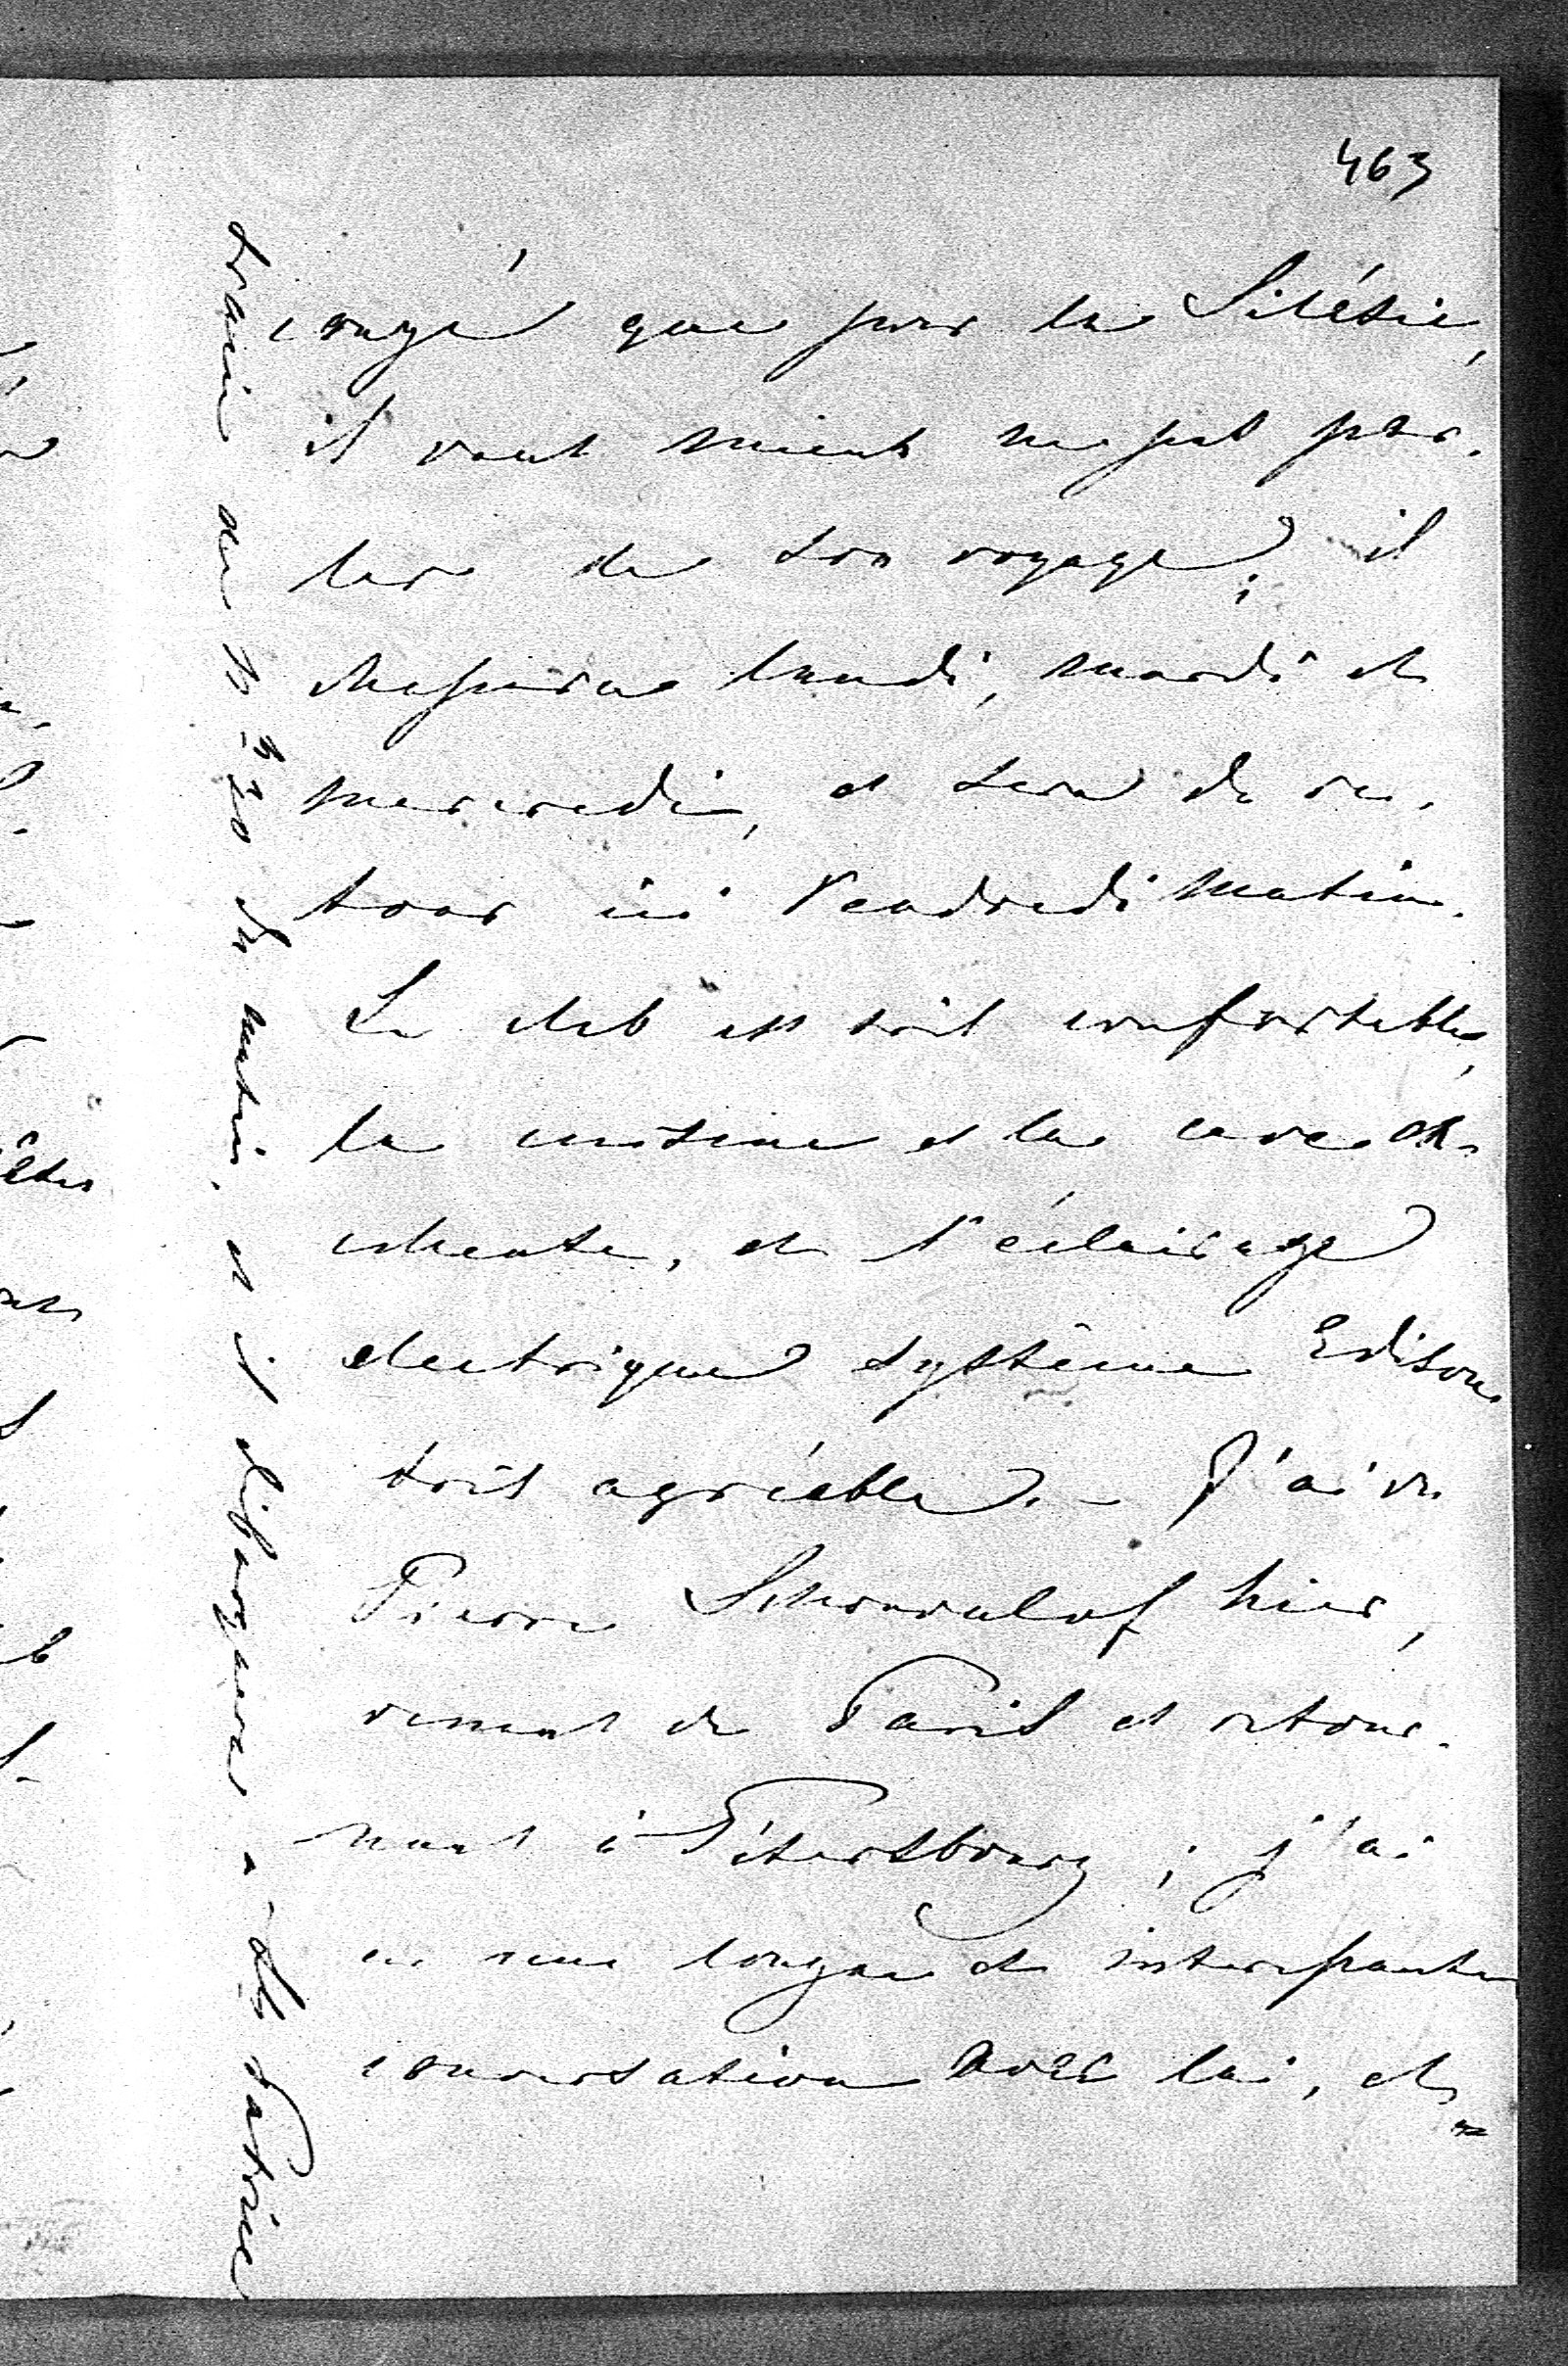 463
congé que pour la Silésie,
il vaut mieux ne pas par-
ler de son voyage; il
chassera lundi, mardi et
mercredi, et sera de re-
tour ici Vendredi matin.
Le club est très confortable,
la cuisine et la cave ex-
cellente, et l'éclairage
electrique système Edison
très agréable. - J'ai vu
Pierre Schouvalof hier,
venant de Paris et retour-
nant à Pétersbourg; j'ai
eu une longue et interessante
conversation avec lui, et
train de h 3 30 du matin, et il